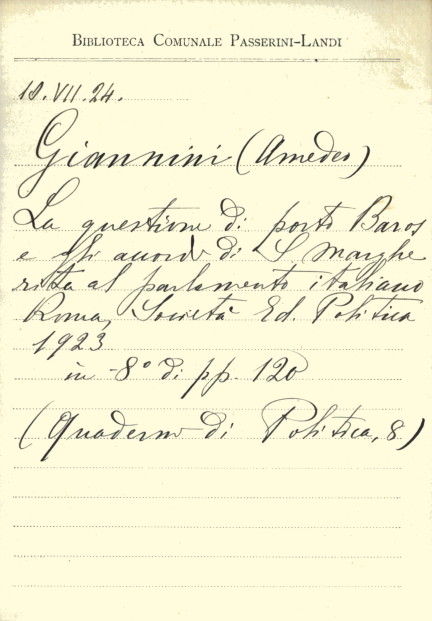 BIBLIOTECA COMUNALE PASSERINI-LANDI
18.VII.24.
Giannini (Amedeo)
La questione di porto Baros
e gli accordi di S. Marghe
rita al parlamento italiano
Roma, Società Ed. Politica
1923
in -8° di pp. 120
(Quaderno di Politica, 8)